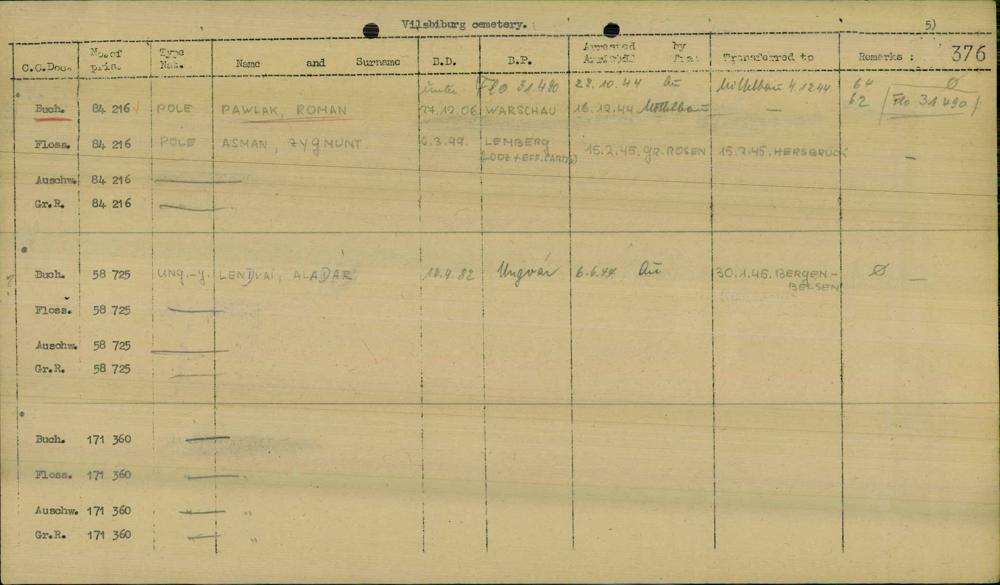 Vilsbiburg cemetery. 5)
376
C.C.Doc. No. of pris. Type Nat. Name and Surname B.D. B.P. Arrested by Transferred to Remarks :
unter Flo 31490 28.10.44 Au Mittelbau 4.12.44 64 Ø
Buch. 84 216 POLE PAWLAK, ROMAN 12.06 WARSCHAU 16.12.44 Mittelbau — 62 / Flo 31490 /
Floss. 84 216 POLE ASMAN, ZYGMUNT 3.99. LEMBERG 15.2.45. GR. ROSEN 15.2.45. HERSBRUCK —
(LODZ + EFF. CARDS)
Auschw. 84 216 —
Gr.R. 84 216 —
Buch. 58 725 UNG.-Y. LENDVAI, ALADAR 4.82 Ungvár 6.6.44 Au 30.1.45. BERGEN- Ø —
BELSEN
Floss. 58 725 —
Auschw. 58 725 —
Gr.R. 58 725 —
Buch. 171 360 —
Floss. 171 360 —
Auschw. 171 360 — "
Gr.R. 171 360 — "